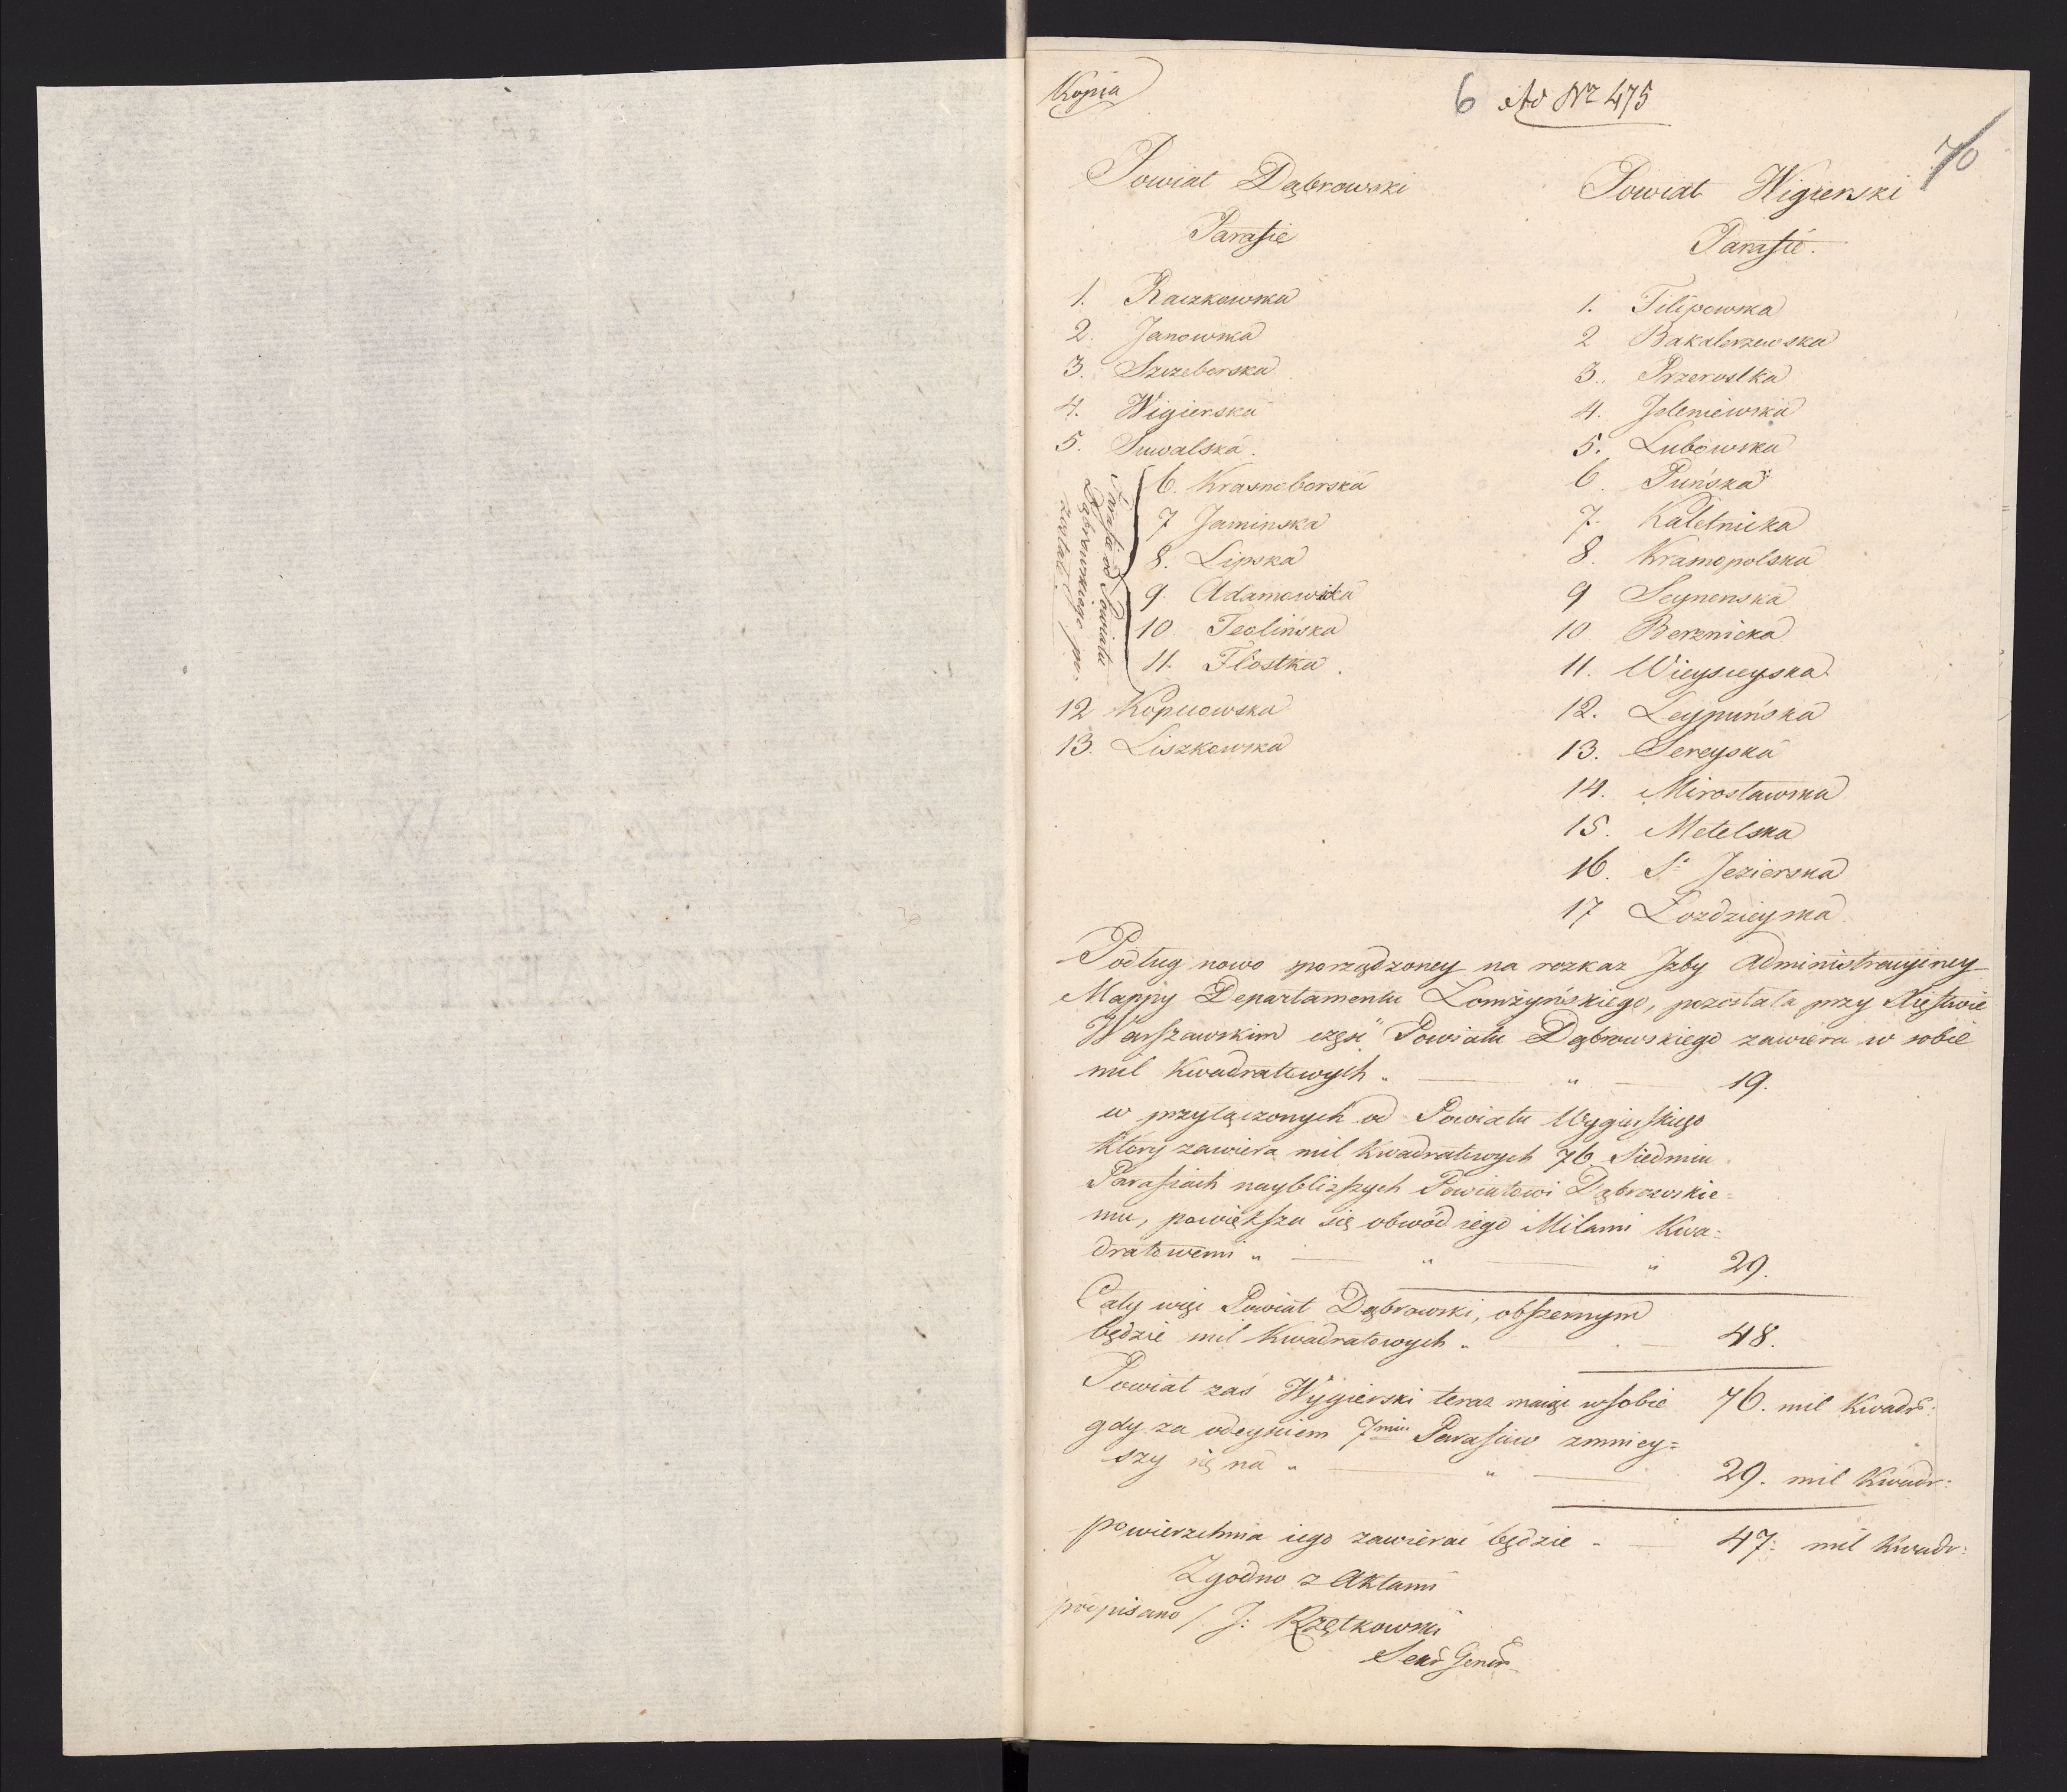 Kopia
6 Ad Nr 475
70
Powiat Dąbrowski
Parafie
1. Raczkowska
2. Janowska
3. Szczeberska
4. Wigierska
5. Suwalska.
6. Krasnoborska
7 Jaminska
8. Lipska
9. Adamowicka
10 Teolińska
11. Hostka.
12 Kopciowska
13. Liszkowska
Parafie od Powiatu
Dąbrowskiego po-
zostałe.
Powiat Wigierski
Parafie.
1. Filipowska
2 Bakalerzewska
3. Przeroslka
4. Jeleniewska
5. Lubowska
6. Puńska
7. Kaletnicka
8. Krasnopolska
9 Seynenska
10 Berznicka
11. Wieysieyska
12. Leypuńska
13. Sereyska
14. Mirosławska
15. Metelska
16. St Jezierska
17 Łozdzieyska
Podług nowo sporządzoney na rozkaz Izby Administracyiney
Mappy Departamentu Łomżyńskiego, pozostała przy Xięstwie
Warszawskim część Powiatu Dąbrowskiego zawiera w sobie
mil Kwadratowych " — " — 19.
w przyłączonych od Powiatu Wygierskiego
który zawiera mil Kwadratowych 76 Siedmiu
Parafiach nayblizszych Powiatowi Dąbrowskie=
mu, powiększa się obwód iego Milami Kwa=
dratowemi " — " — " 29.
Cały więc Powiat Dąbrowski, obszernym
będzie mil Kwadratowych " — 48.
Powiat zaś Wygierski teraz maiąc w sobie 76. mil Kwadr:
gdy za odeyściem 7miu Parafiiów zmniey=
szy się na " — " — 29. mil Kwadr:
powierzchnia iego zawierać będzie — 47. mil Kwadr:
Zgodno z Aktami
podpisano / J: Rzętkowski
Sekr Gener